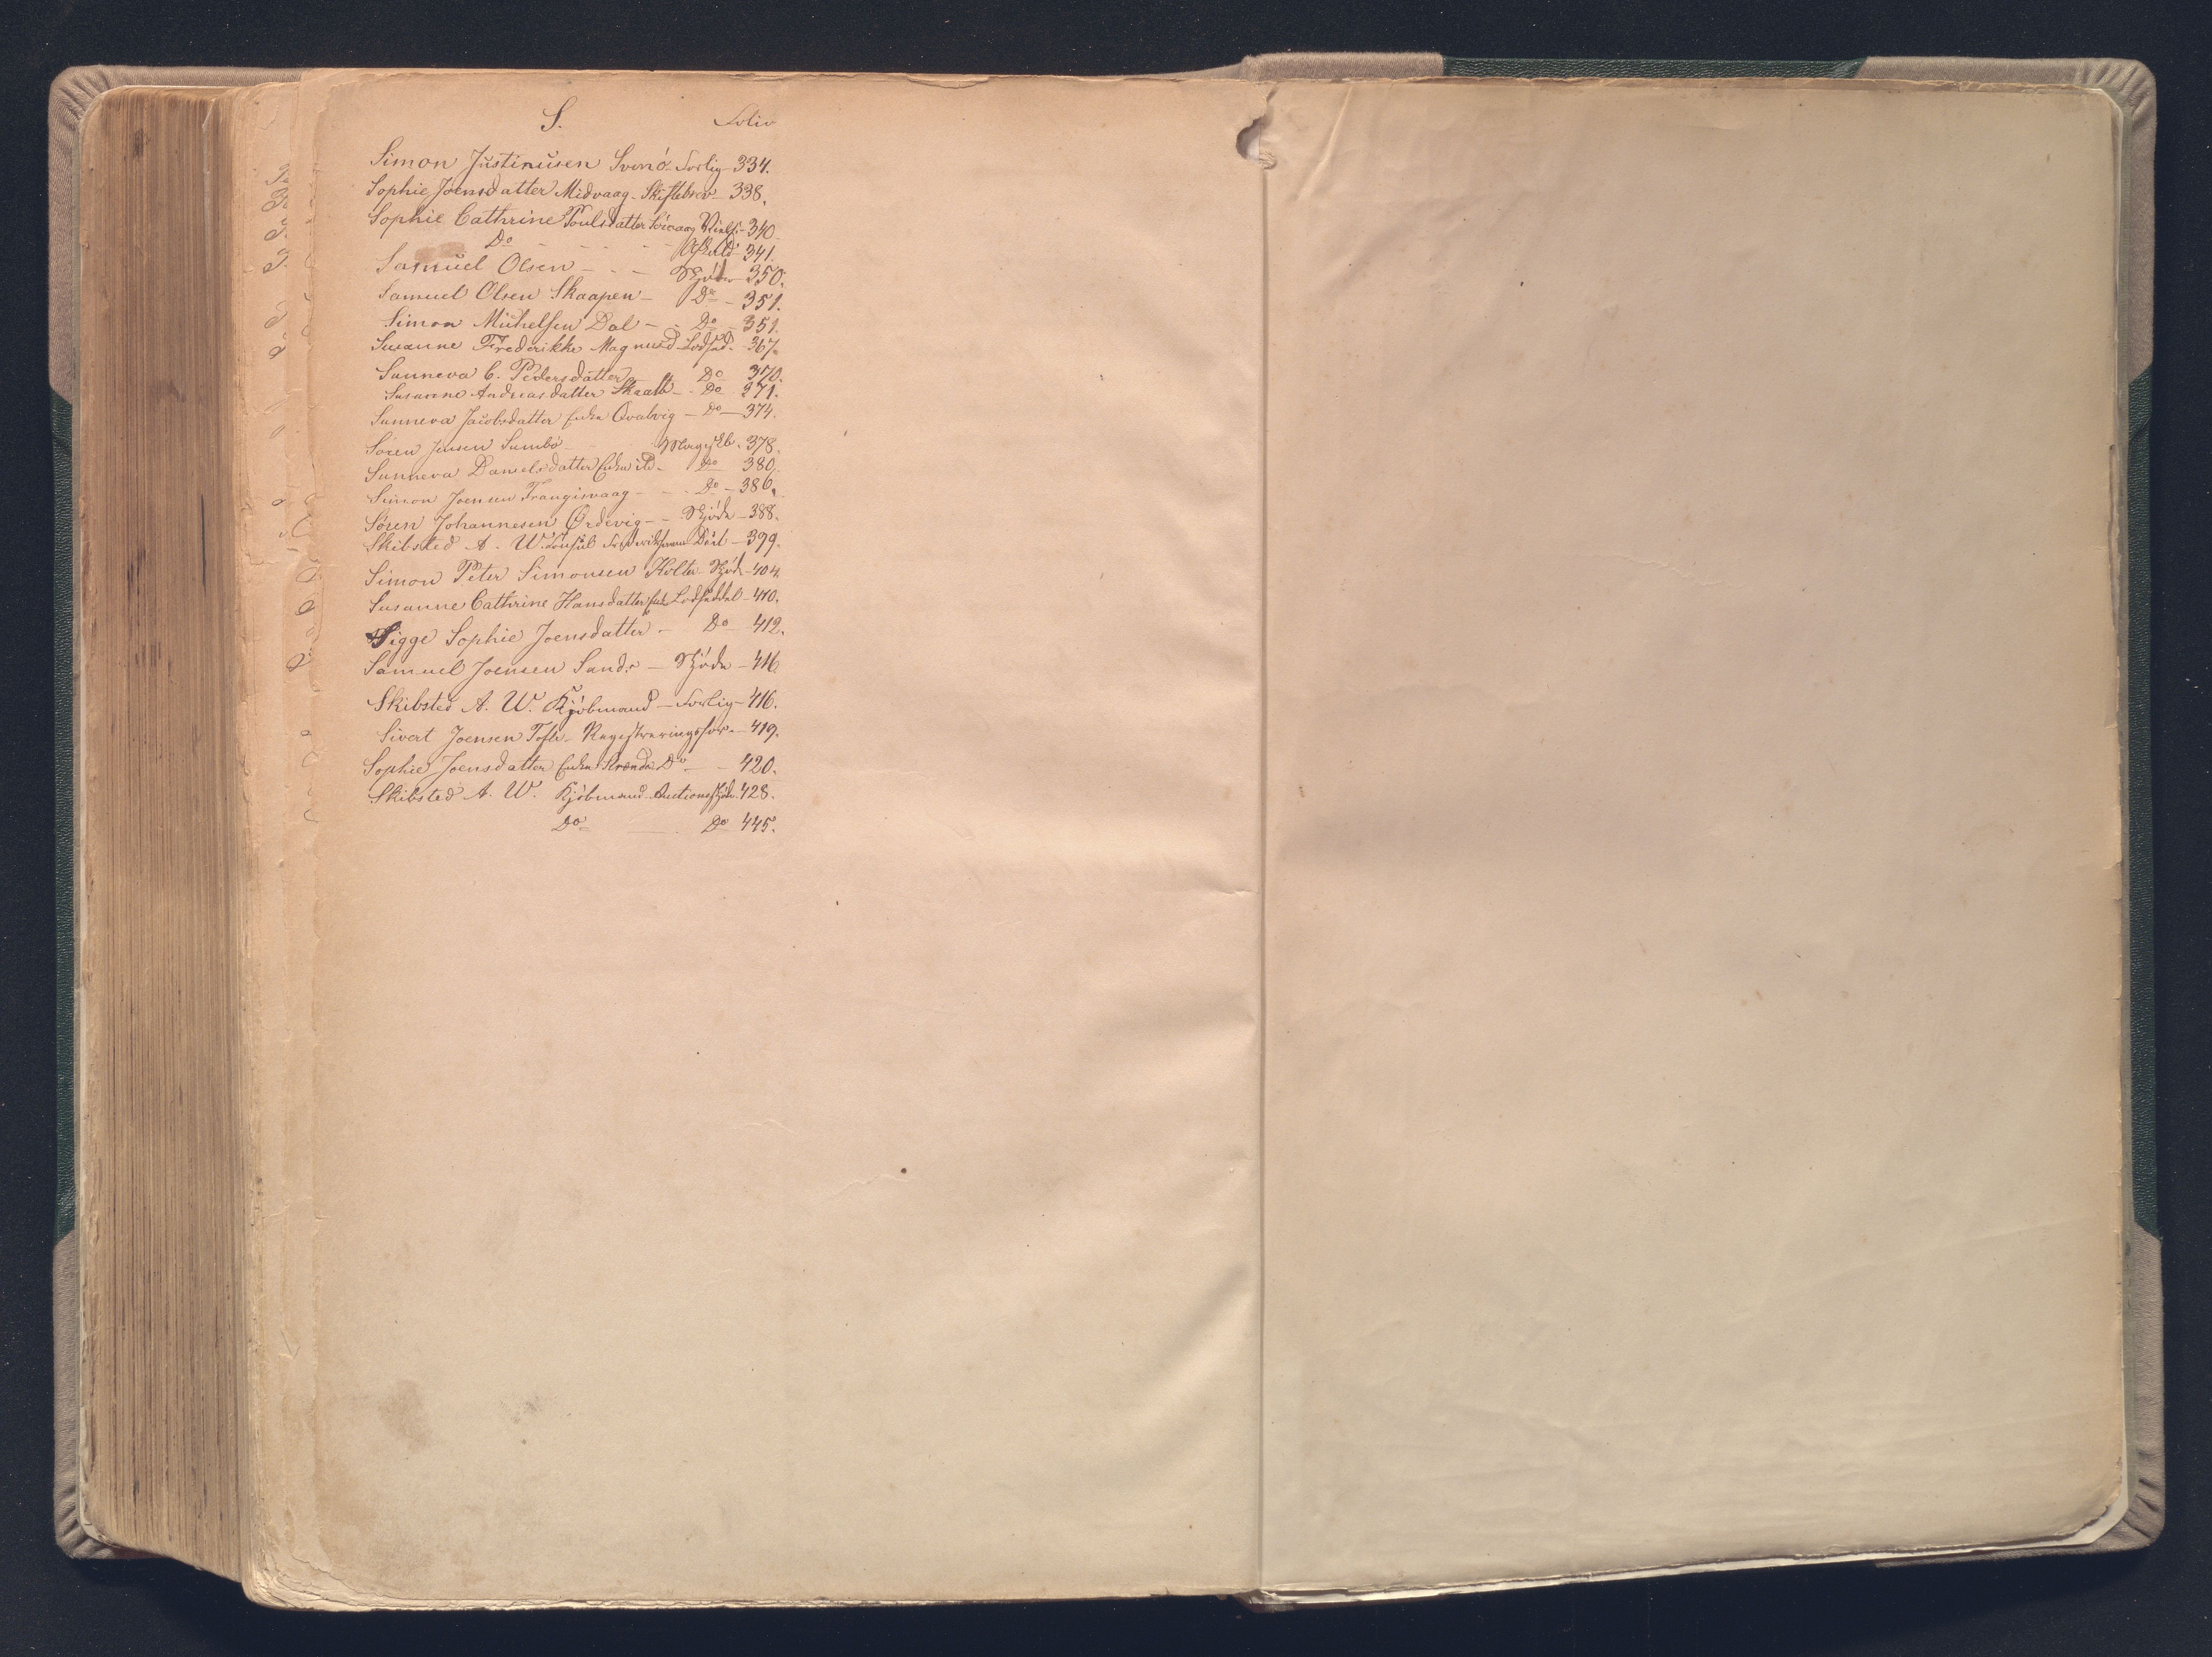 S. Folio
Simon Justinusen Svinö Forlig 334.
Sophie Joensdatter Midvaag - Skiftebrev 338.
Sophie Cathrine Poulsdatter Sörvaag 340
Do - - - - Afkald 341.
Samuel Olsen - - - Skjöde 350.
Samuel Olsen Skaapen - Do - 351.
Simon Michelsen Dal - - Do 351.
Susanne Frederikke Magnusd. Lodsed. 367.
Sunneva C. Pedersdatter Do 370.
Susanne Andreasdatter Skaalh - Do 271.
Sunneva Jacobsdatter Enke Qvalvig - Do - 374.
Sören Jensen Sumbö Mageskb. 378.
Sunneva Danielsdatter Enke ibd. Do 380.
Simon Joensen Trangisvaag - - - Do - 386.
Sören Johannesen Ördevig - - Skjöde - 388.
Skibsted A. W. Consul Frederikshavn 399.
Simon Peter Simonsen Kolter Skjöde - 404.
Susanne Cathrine Hansdatter Enke Lodseddel - 410.
Sigge Sophie Joensdatter - Do 412.
Samuel Joensen Sand - Skjöde - 416
Skibsted A. W. Kjöbmand - Forlig - 416.
Sivert Joensen Tofte - Registreringsfor. - 419.
Sophie Joensdatter Enke Strende Do - - 420.
Skibsted A. W. Kjöbmand Auctionsskjöde 428.
Do Do 445.